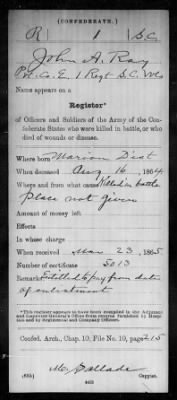 (CONFEDERATE.)
R 1 S.C.
John A. Ray
Pvt. Co. E, 1 Regt S.C. Vols
Name appears on a
Register*
of Officers and Soldiers of the Army of the Confederate
States who were killed in battle, or who
died of wounds or disease.
Where born Marion Dist
When deceased Aug 16, 1864
Where and from what cause Killed in battle
Place not given
Amount of money left
Effects
In whose charge
When received Mar 23, 1865
Number of certificate 5013
Remarks: Entitled to pay from date
of enlistment
Confed. Arch., Chap. 10, File No. 19, page 215
Copyist.